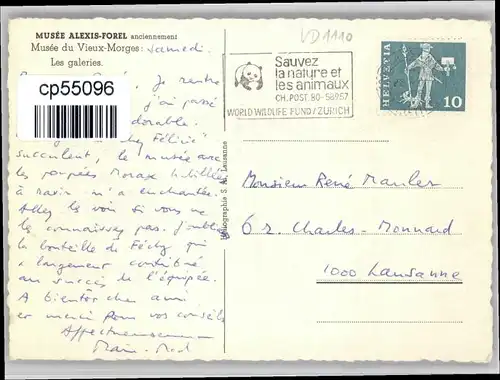 MUSÉE ALEXIS-FOREL anciennement
Musée du Vieux-Morges: samedi.
Les galeries.
Je rentre
cp55096
j'ai passé
adorable.
chez Félicie"
succulent, le musée avec
les poupées Morax habillées
à ravir m'a enchantée.
Allez le voir si vous ne
le connaissez pas. J'oublie
la bouteille de Féchy qui
a largement contribué
au succès de l'équipée.
A bientôt cher ami
et merci pour vos conseils
Affectueusement
Héliographia S. A., Lausanne
VD1110
Sauvez
la nature et
les animaux
CH. POST. 80-58957
WORLD WILDLIFE FUND / ZURICH
HELVETIA
10
Monsieur René
6 r. Charles-Monnard
1000 Lausanne